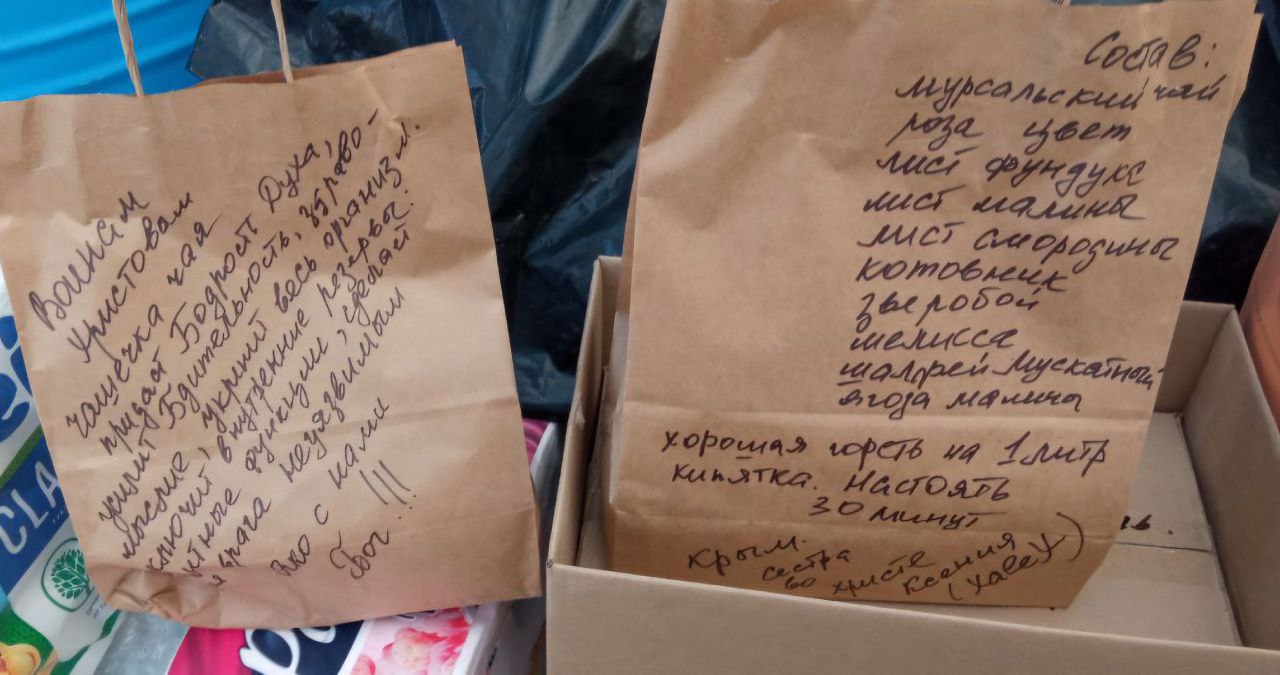 Воинам
Христовам
чашечка чая
придай Бодрость Духа,
усилит Бдительность, здраво-
мыслие, укрепит весь организм.
включит внутренние резервы.
функции, сделай
врага неуязвимым
Бог!!!
с нами
Состав:
мурсальский чай
роза цвет
лист фундука
лист малины
лист смородины
котовник
зверобой
мелисса
шалфей мускатный
ягода малины
хорошая горсть на 1 литр
кипятка. Настоять
30 минут
Крым.
сестра
во христе
Ксения
CLA